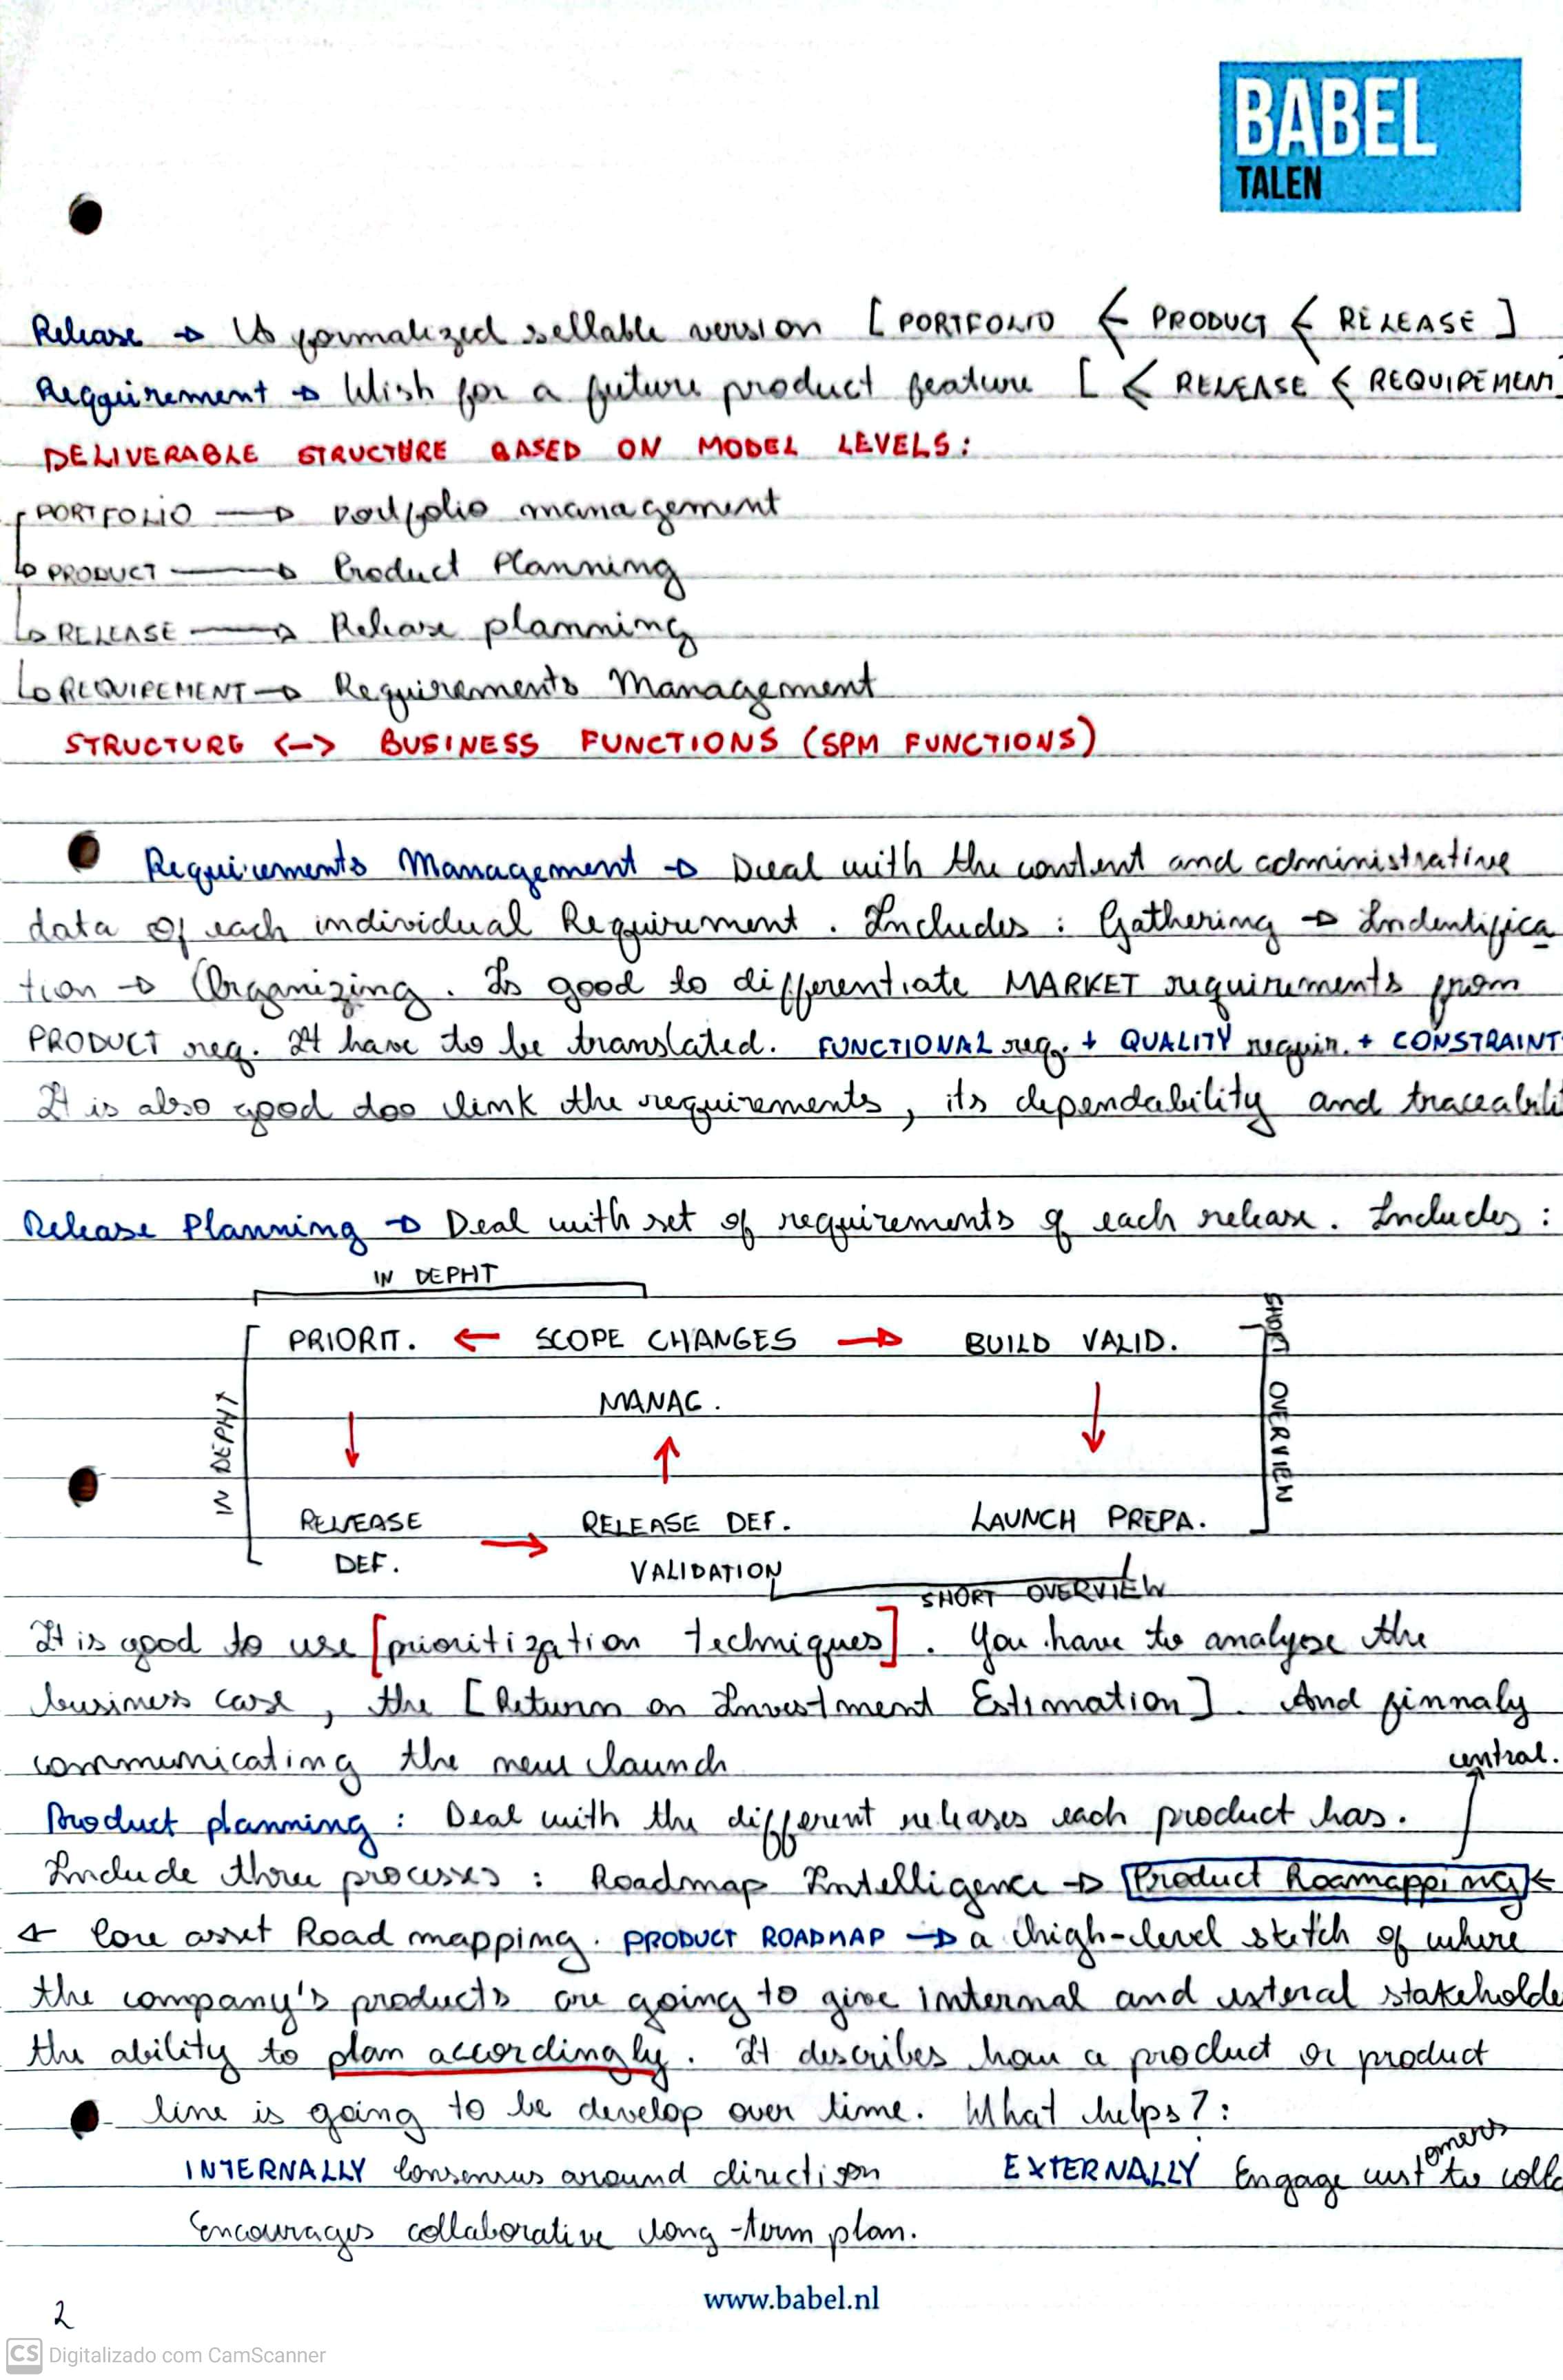 BABEL
TALEN
Release → Is formalized sellable version [PORTFOLIO < PRODUCT < RELEASE]
Requirement → Wish for a future product feature [ < RELEASE < REQUIREMENT
DELIVERABLE STRUCTURE BASED ON MODEL LEVELS:
PORTFOLIO → Portfolio management
PRODUCT → Product Planning
RELEASE → Release planning
REQUIREMENT → Requirements Management
STRUCTURE <-> BUSINESS FUNCTIONS (SPM FUNCTIONS)
Requirements Management → Deal with the content and administrative
data of each individual Requirement. Includes: Gathering → Indentifica
tion → Organizing. Is good to differentiate MARKET requirements from
PRODUCT req. It have to be translated. FUNCTIONAL req. + QUALITY requir. + CONSTRAINT
It is also good doo link the requirements, its dependability and traceabili
Release Planning → Deal with set of requirements of each release. Includes:
IN DEPHT
PRIORIT. ← SCOPE CHANGES → BUILD VALID.
SHORT OVERVIEW
MANAG.
IN DEPHT
RELEASE → RELEASE DEF. LAUNCH PREPA.
DEF. VALIDATION
SHORT OVERVIEW
It is good to use [prioritization techniques]. You have to analyse the
business case, the [Return on Investment Estimation]. And finnaly
communicating the new launch
central.
Product planning: Deal with the different releases each product has.
Include three processes: Roadmap Intelligence → Product Roamapping ←
← Core asset Road mapping. PRODUCT ROADMAP → a high-level sketch of where
the company's products are going to give internal and exteral stakeholde
the ability to plan accordingly. It describes how a product or product
line is going to be develop over time. What helps?:
INTERNALLY Consensus around direction EXTERNALLY Engage customers to colla
Encourages collaborative long-term plan.
www.babel.nl
2
CS Digitalizado com CamScanner